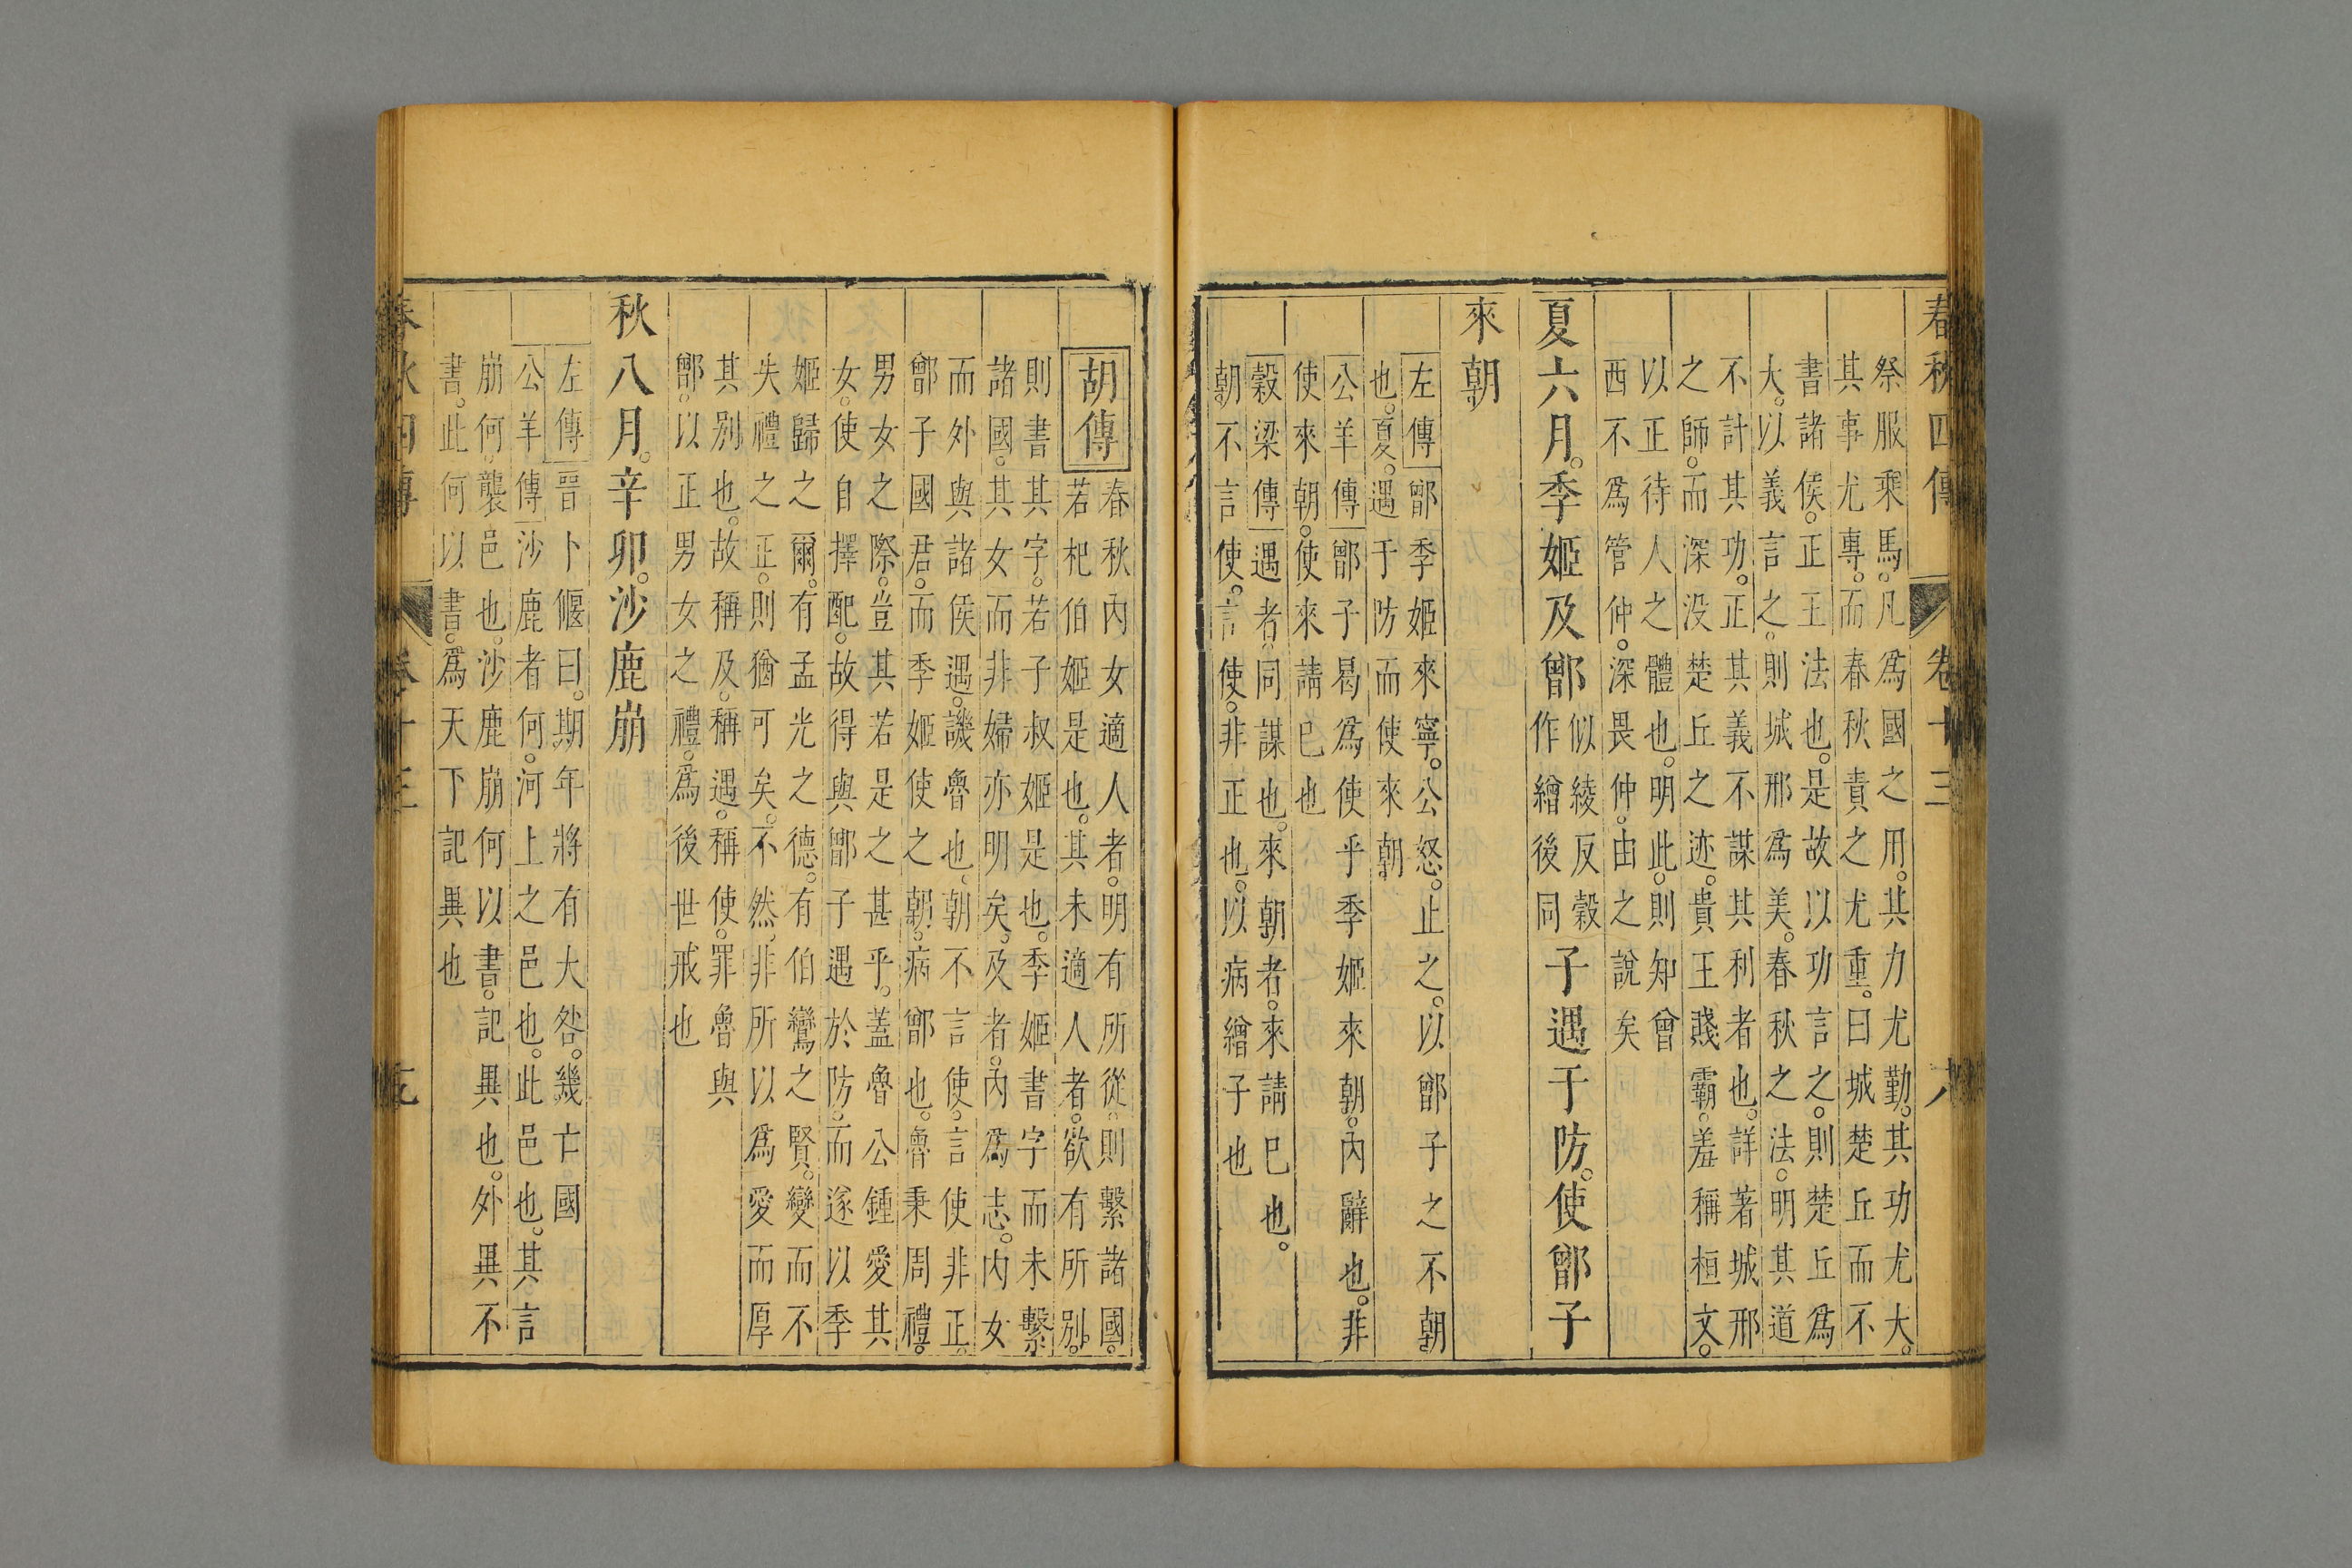 春秋四傳 卷十三 八
祭服乘馬。凡爲國之用。其力尤勤。其功尤大。
其事尤專。而春秋責之尤重。曰城楚丘而不
書諸侯。正王法也。是故以功言之。則楚丘爲
大。以義言之。則城邢爲美。春秋之法。明其道
不計其功。正其義不謀其利者也。詳著城邢
之師。而深没楚丘之迹。貴王賤霸。羞稱桓文。
以正待人之體也。明此。則知曾
西不爲管仲。深畏仲。由之說矣
夏六月。季姬及鄫似綾反穀作繒後同子遇于防。使鄫子
來朝
左傳鄫季姬來寧。公怒。止之。以鄫子之不朝
也。夏。遇于防而使來朝
公羊傳鄫子曷爲使乎季姬來朝。內辭也。非
使來朝。使來請已也
穀梁傳遇者。同謀也。來朝者。來請已也。
朝。不言使。言使。非正也。以病繒子也
胡傳春秋內女適人者。明有所從。則繫諸國。
若杞伯姬是也。其未適人者。欲有所別。
則書其字。若子叔姬是也。季姬書字而未繫
諸國。其女而非婦亦明矣。及者。內爲志。內女
而外與諸侯遇。譏魯也。朝不言使。言使非正。
鄫子國君。而季姬使之朝。病鄫也。魯秉周禮。
男女之際。豈其若是之甚乎。蓋魯公鍾愛其
女。使自擇配。故得與鄫子遇於防。而遂以季
姬歸之爾。有孟光之德。有伯鸞之賢。變而不
失禮之正。則猶可矣。不然。非所以爲愛而厚
其別也。故稱及。稱遇。稱使。罪魯與
鄫。以正男女之禮。爲後世戒也
秋八月。辛卯。沙鹿崩
左傳晉卜偃曰。期年將有大咎。幾亡國
公羊傳沙鹿者何。河上之邑也。此邑也。其言
崩何。襲邑也。沙鹿崩何以書。記異也。外異不
書。此何以書。爲天下記異也
春秋四傳 卷十三